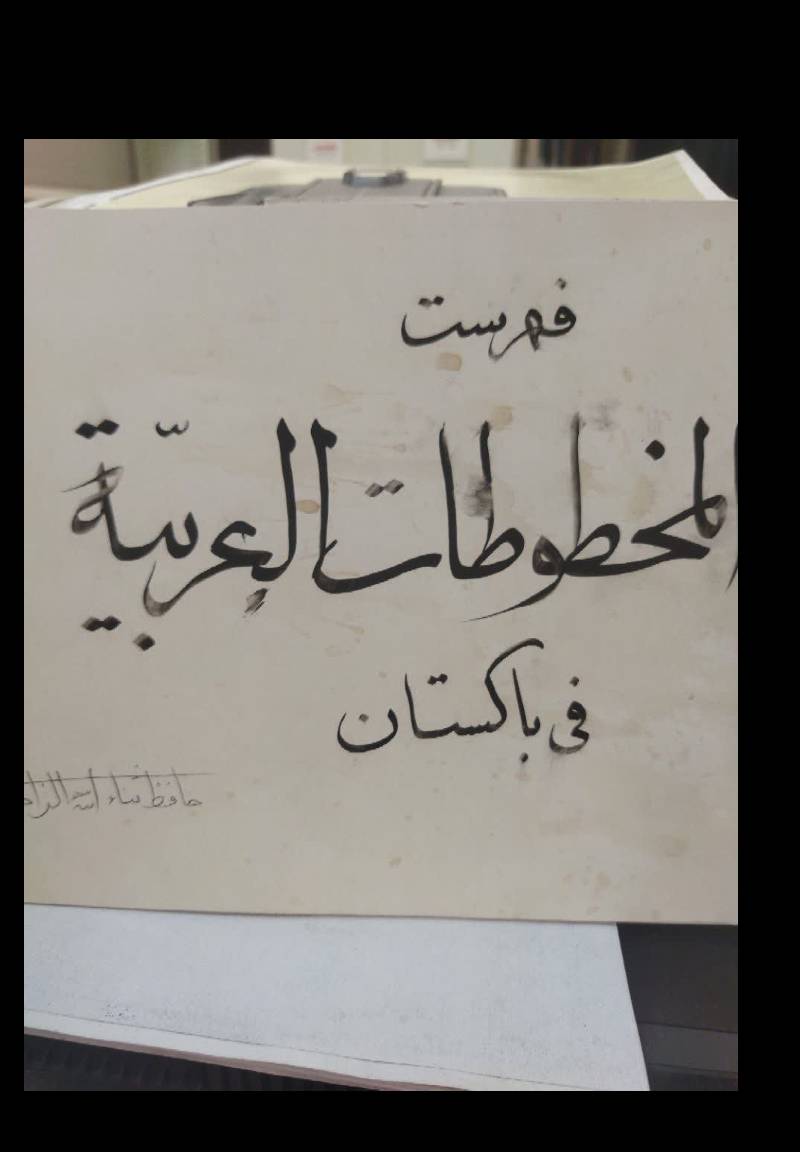 فهرست
المخطوطات العربيّة
فى باكستان
حافظ ثناء الله